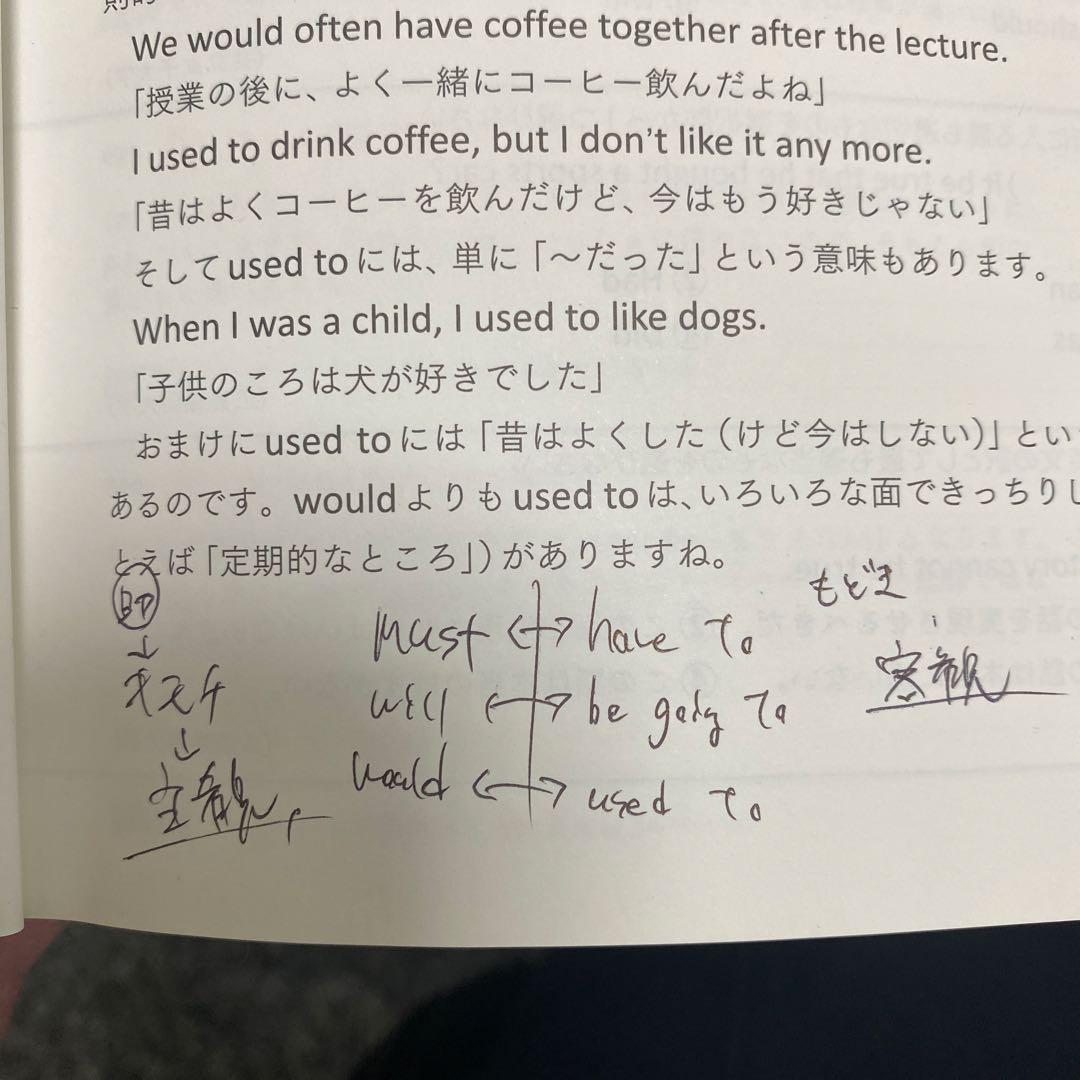 We would often have coffee together after the lecture.
「授業の後に、よく一緒にコーヒー飲んだよね」
I used to drink coffee, but I don't like it any more.
「昔はよくコーヒーを飲んだけど、今はもう好きじゃない」
そして used to には、単に「～だった」という意味もあります。
When I was a child, I used to like dogs.
「子供のころは犬が好きでした」
おまけに used to には「昔はよくした（けど今はしない）」とい
あるのです。would よりも used to は、いろいろな面できっちりし
とえば「定期的なところ」）がありますね。
助
↓
キモチ
↓
主観
must ↔ have to
will ↔ be going to
would ↔ used to
もどき
客観